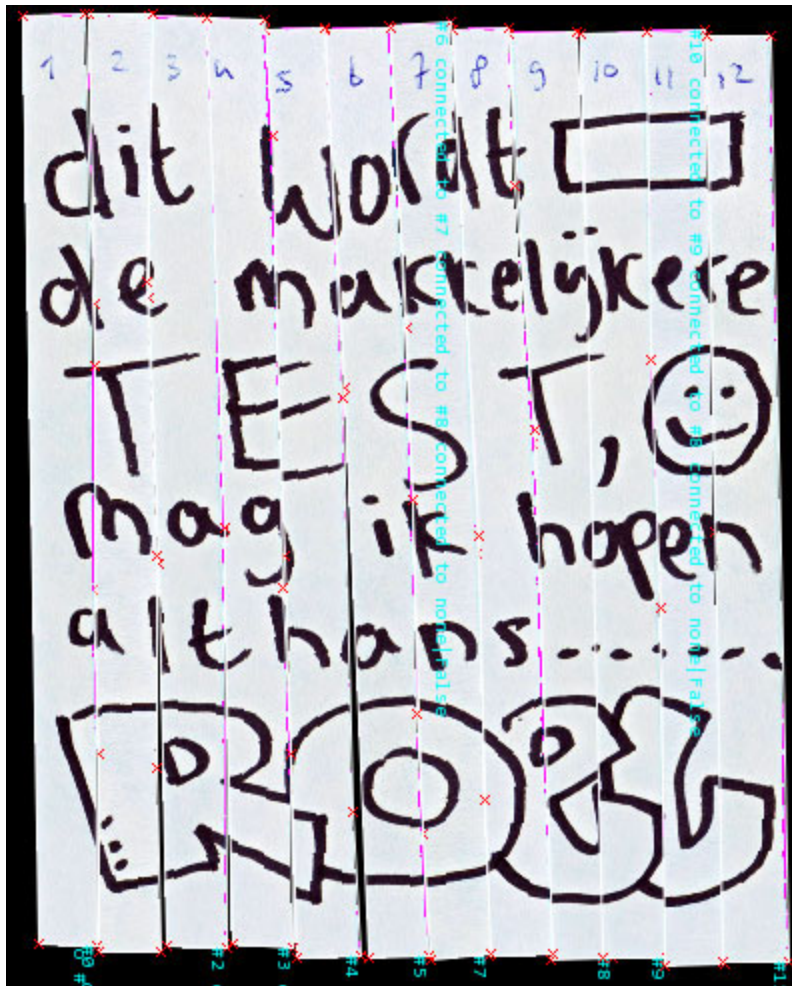 1 2 3 4 5 6 7 8 9 10 11 12
dit wordt
de makkelijkere
TEST,
mag ik hopen
althans........
ROEL
#6 connected to #7 connected to #8 connected to none|False
#10 connected to #9 connected to #8 connected to none|False
#0 #2 #3 #4 #5 #7 #8 #9 #1